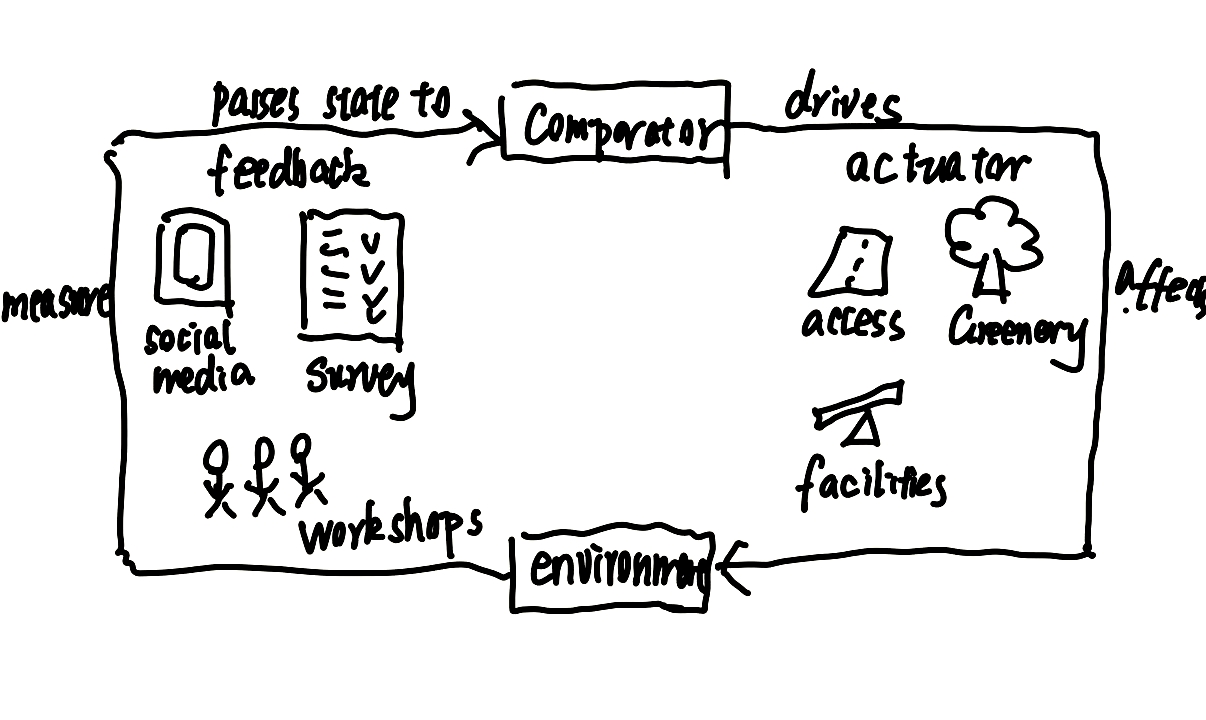 passes state to
Comparator
drives
feedback
actuator
measure
affects
social
media
survey
access
Greenery
facilities
workshops
environment